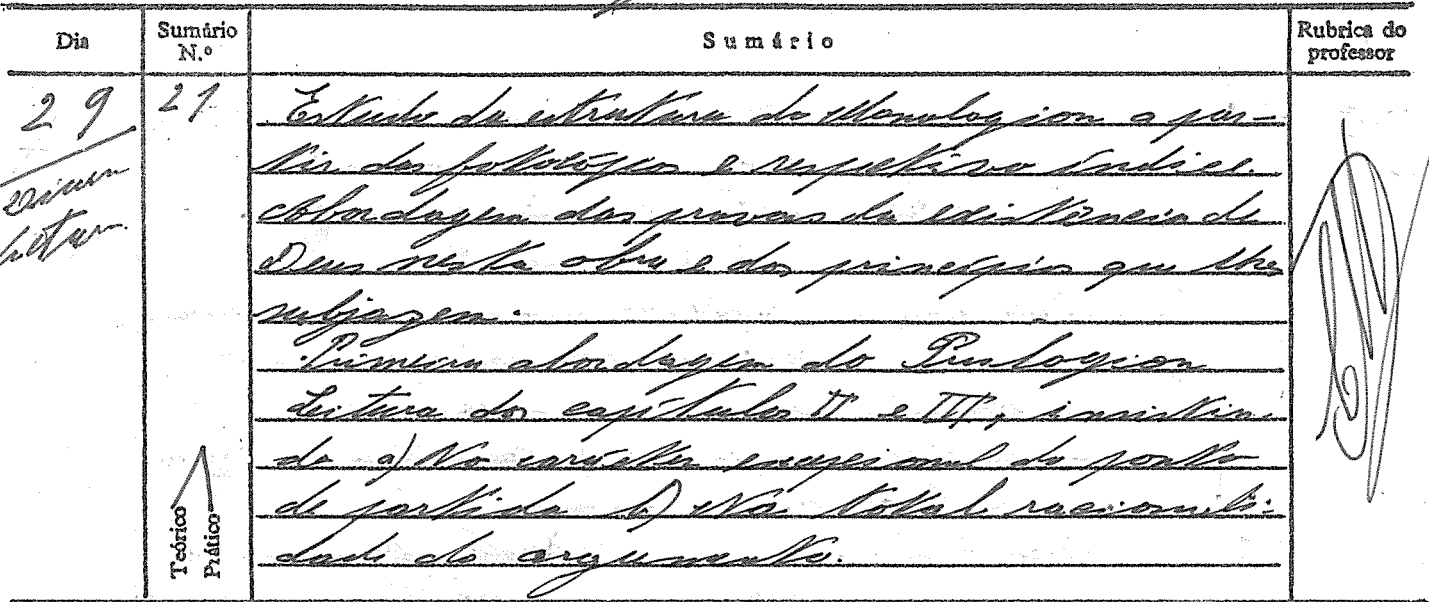 Dia
Sumário N.º
Sumário
Rubrica do professor
29
21
Estudo da estrutura do Monologion a par-
tir das fotocópias e respetivo índice.
Abordagem das provas da existência de
Deus nesta obra e dos princípios que lhes
subjazem.
Primeira abordagem do Proslogion
Leitura dos capítulos II e III, insistin-
do a) No carácter excepcional do ponto
de partida b) Na total racionali-
dade do argumento.
Teórico
Prático